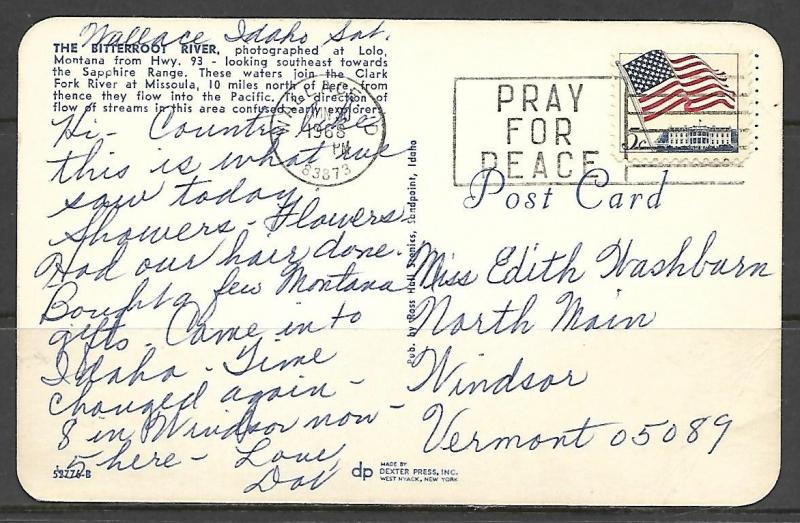 Wallace Idaho Sat.
THE BITTERROOT RIVER, photographed at Lolo,
Montana from Hwy. 93 - looking southeast towards
the Sapphire Range. These waters join the Clark
Fork River at Missoula, 10 miles north of here, from
thence they flow into the Pacific. The direction of
flow of streams in this area confused early explorers.
Hi - Country
this is what we
saw today.
Showers - Flowers
Had our hair done.
Bought a few Montana
gifts - Came in to
Idaho - Time
changed again -
8 in Windsor now -
5 here - Love,
Dot
53776-B
1968
PM
83873
PRAY
FOR
PEACE
Post Card
Pub. by Ross Hall Scenics, Sandpoint, Idaho
Miss Edith Washburn
North Main
Windsor
Vermont 05089
dp
MADE BY
DEXTER PRESS, INC.
WEST NYACK, NEW YORK